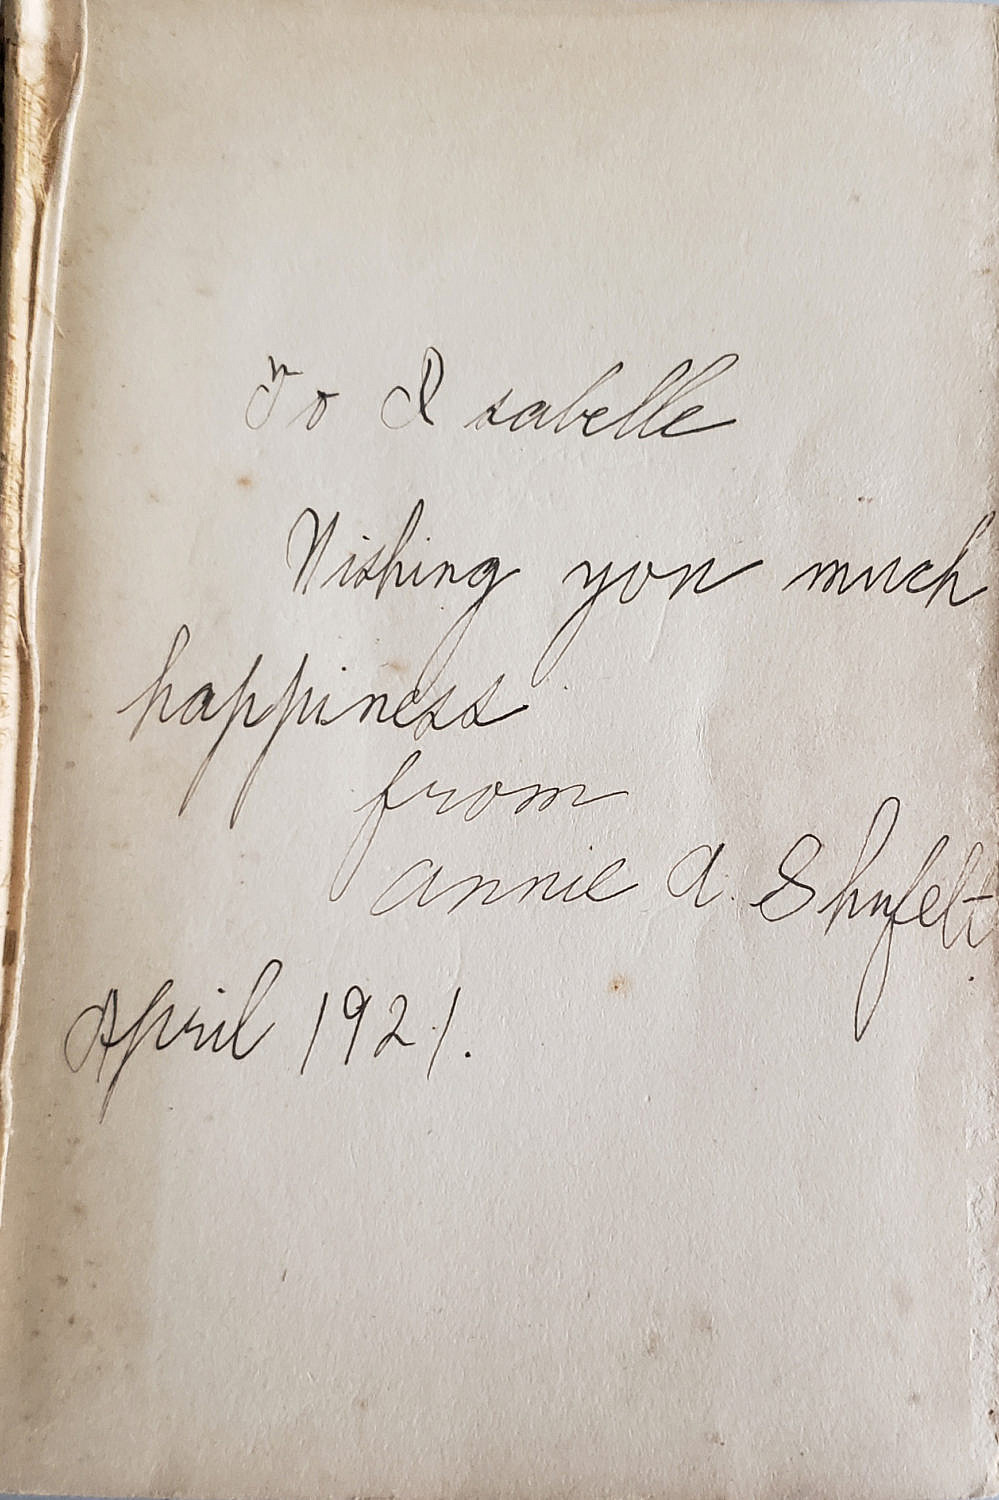 To Isabelle
Wishing you much
happiness
from
Annie A. Shufelt.
April 1921.